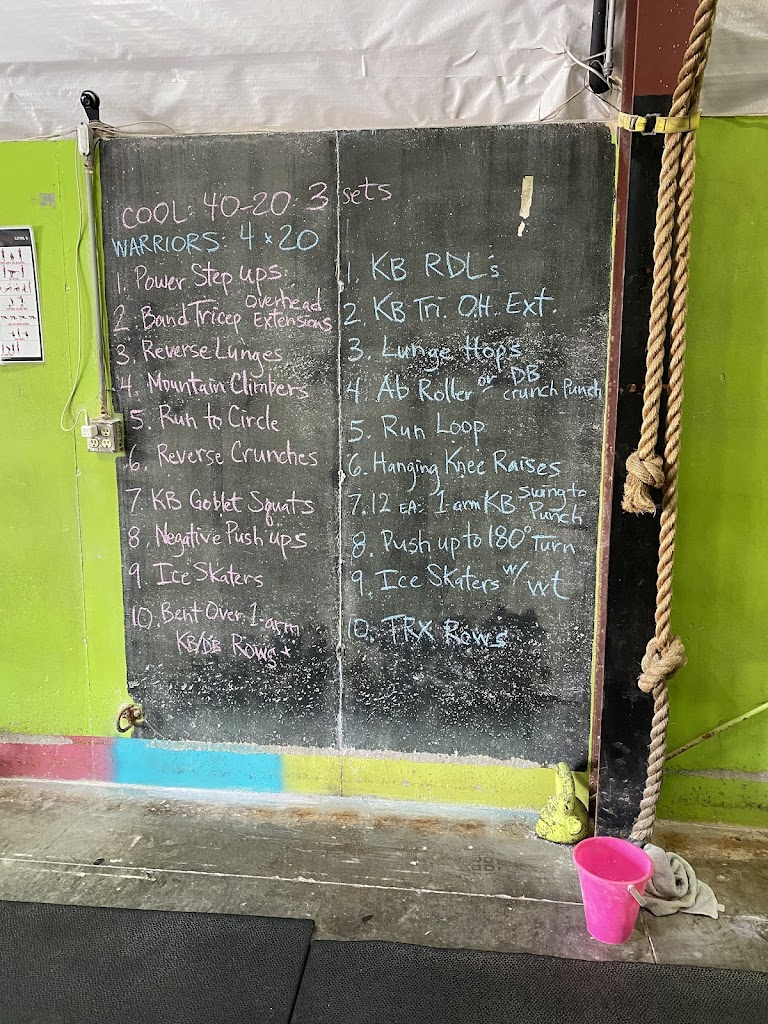 COOL: 40-20: 3 sets
WARRIORS: 4 x 20
1. Power Step ups:
2. Band Tricep overhead Extensions
3. Reverse Lunges
4. Mountain Climbers
5. Run to Circle
6. Reverse Crunches
7. KB Goblet Squats
8. Negative Push ups
9. Ice Skaters
10. Bent Over 1-arm
KB/DB Rows *
1. KB RDL's
2. KB Tri. O.H. Ext.
3. Lunge Hops
4. Ab Roller or DB crunch Punch
5. Run Loop
6. Hanging Knee Raises
7. 12 EA: 1 arm KB swing to Punch
8. Push up to 180° Turn
9. Ice Skaters w/ wt
10. TRX Rows